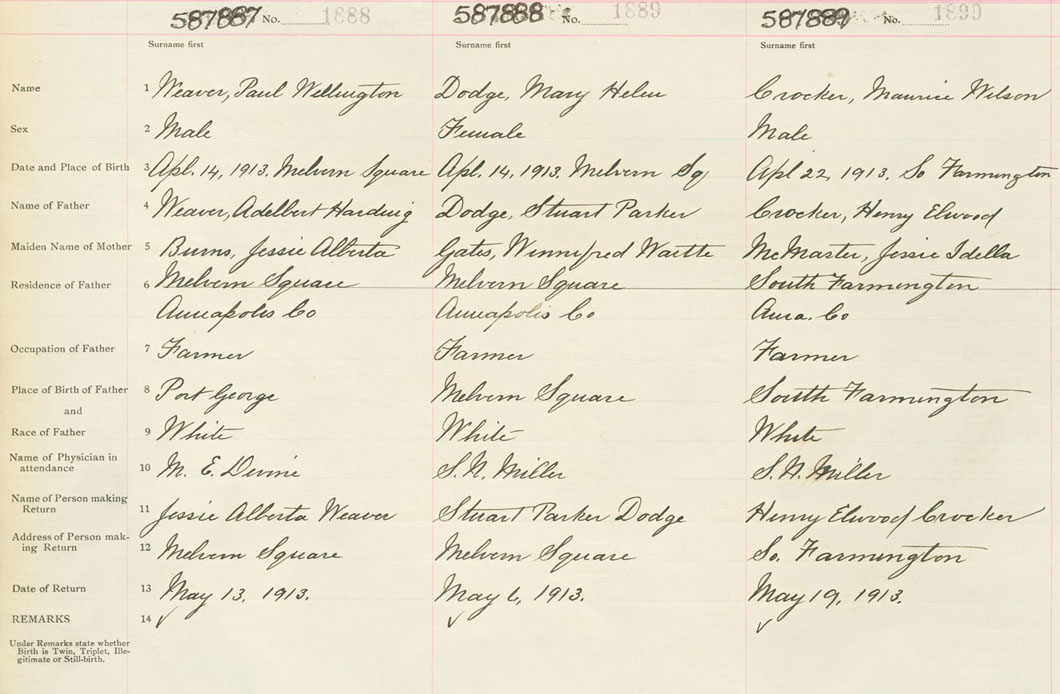 587887 No. 1888 587888 No. 1889 587889 No. 1890
Surname first Surname first Surname first
Name 1 Weaver, Paul Wellington Dodge, Mary Helen Crocker, Maurice Wilson
Sex 2 Male Female Male
Date and Place of Birth 3 Apl. 14, 1913. Melvern Square Apl. 14, 1913. Melvern Sq Apl 22, 1913. So Farmington
Name of Father 4 Weaver, Adelbert Harding Dodge, Stuart Parker Crocker, Henry Elwood
Maiden Name of Mother 5 Burns, Jessie Alberta Gates, Winnifred Waitte McMaster, Jessie Idella
Residence of Father 6 Melvern Square Melvern Square South Farmington
Annapolis Co Annapolis Co Anna. Co
Occupation of Father 7 Farmer Farmer Farmer
Place of Birth of Father 8 Port George Melvern Square South Farmington
and
Race of Father 9 White White White
Name of Physician in
attendance 10 M. E. Devine S. N. Miller S. N. Miller
Name of Person making
Return 11 Jessie Alberta Weaver Stuart Parker Dodge Henry Elwood Crocker
Address of Person mak-
ing Return 12 Melvern Square Melvern Square So. Farmington
Date of Return 13 May 13, 1913. May 6, 1913. May 19, 1913.
REMARKS 14 ✓ ✓ ✓
Under Remarks state whether
Birth is Twin, Triplet, Ille-
gitimate or Still-birth.